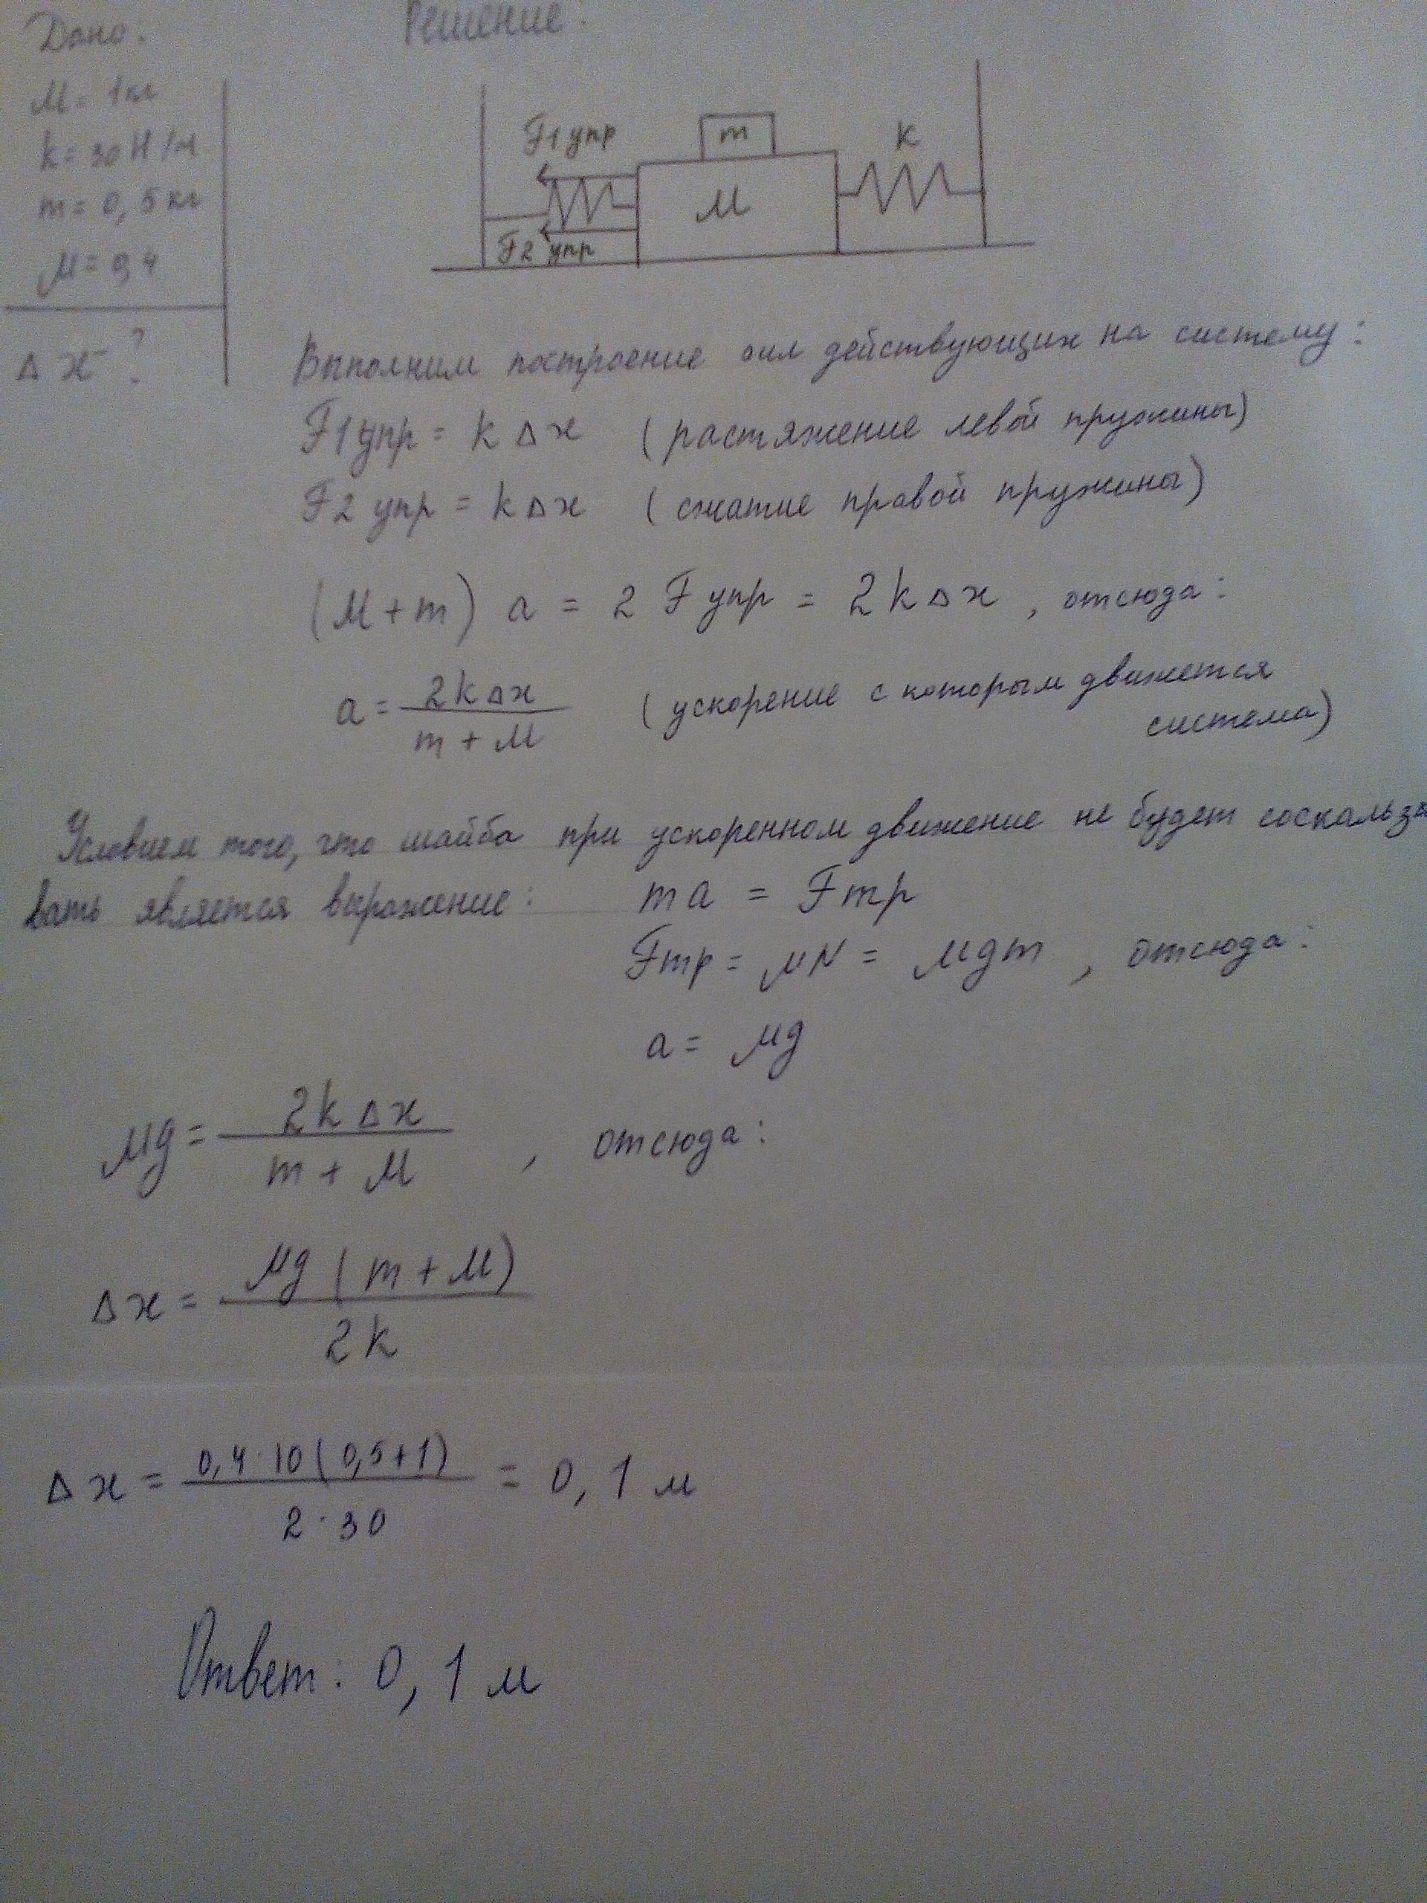 Дано:
M = 1кг
k = 30 Н/м
m = 0,5 кг
μ = 0,4
Δx - ?
Решение:
F1 упр
m
k
M
F2 упр
Выполним построение сил действующих на систему:
F1 упр = kΔx (растяжение левой пружины)
F2 упр = kΔx (сжатие правой пружины)
(M + m) a = 2 F упр = 2kΔx , отсюда:
a = 2kΔx / m + M (ускорение с которым движется
система)
Условием того, что шайба при ускоренном движение не будет соскальзы
вать является выражение: ma = Fтр
Fтр = μN = μgm , отсюда:
a = μg
μg = 2kΔx / m + M , отсюда:
Δx = μg (m + M) / 2k
Δx = 0,4·10 (0,5+1) / 2·30 = 0,1 м
Ответ: 0,1 м